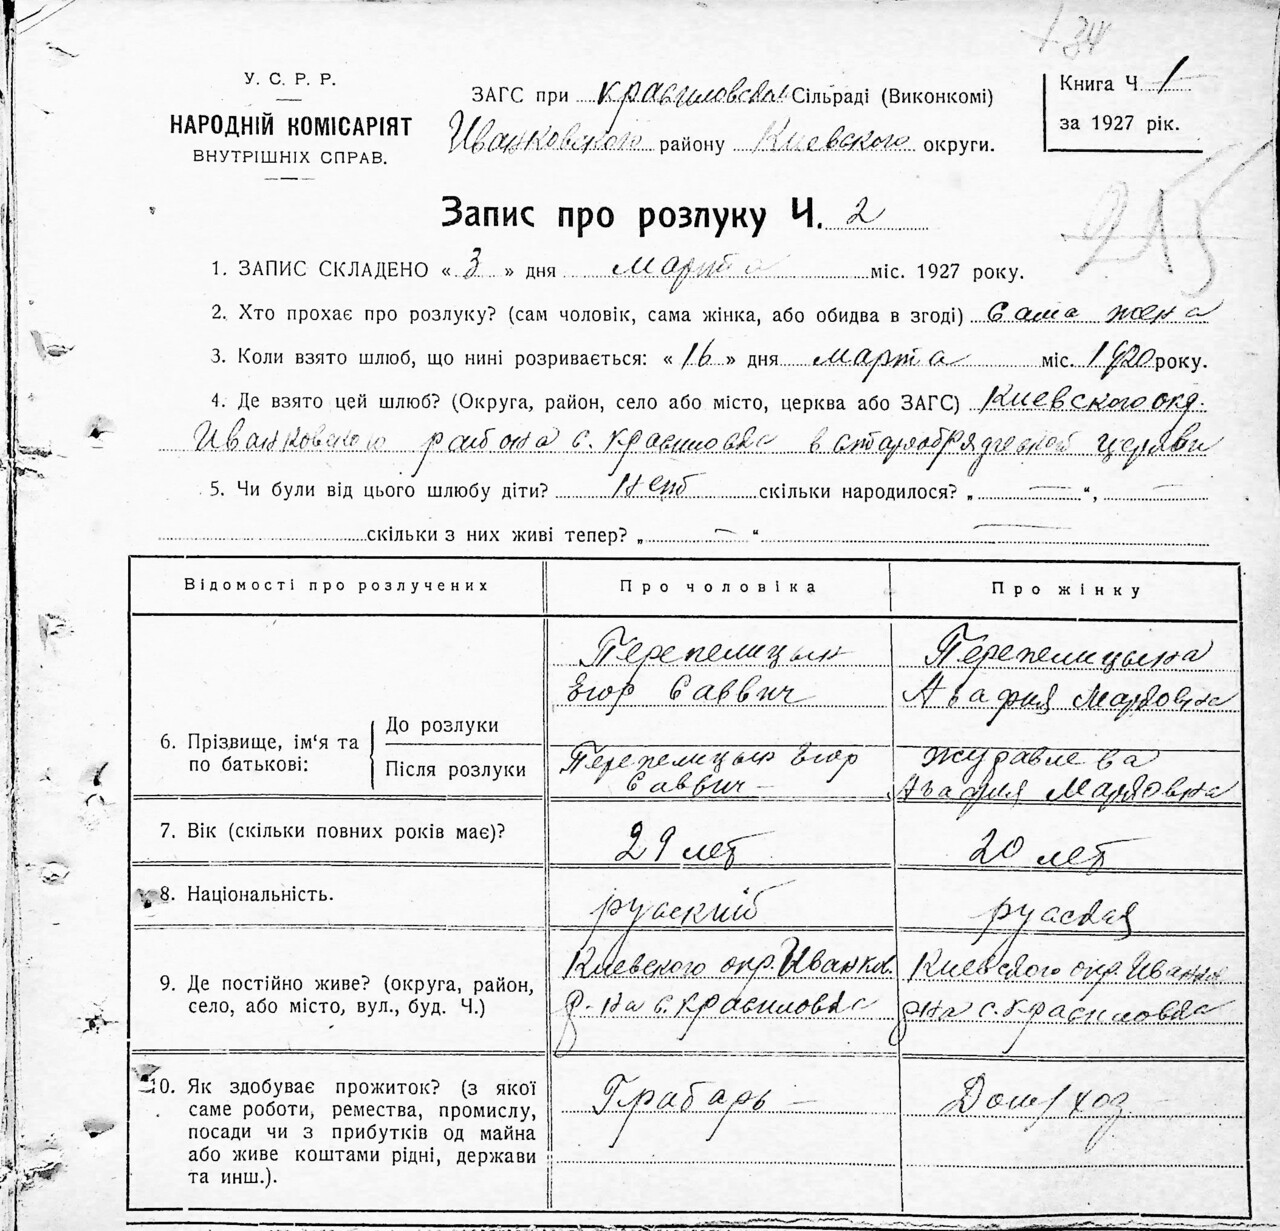 + 34
У. С. Р. Р.
НАРОДНІЙ КОМІСАРІЯТ
ВНУТРІШНІХ СПРАВ.
ЗАГС при Красиловском Сільраді (Виконкомі)
Иванковского району Киевского округи.
Книга Ч 1
за 1927 рік.
215
Запис про розлуку Ч. 2
1. ЗАПИС СКЛАДЕНО « 3 » дня Марта міс. 1927 року.
2. Хто прохає про розлуку? (сам чоловік, сама жінка, або обидва в згоді) Сама жена
3. Коли взято шлюб, що нині розривається: « 16 » дня марта міс. 1920 року.
4. Де взято цей шлюб? (Округа, район, село або місто, церква або ЗАГС) Киевского окр.
Иванковского района с. Красиловка в старообрядческой церкви
5. Чи були від цього шлюбу діти? Нет скільки народилося? „ — “, —
скільки з них живі тепер? „ — “ —
Відомості про розлучених
Про чоловіка
Про жінку
6. Прізвище, ім‘я та по батькові:
До розлуки
Перепелицын
Егор Саввич
Перепелицына
Агафия Марковна
Після розлуки
Перепелицын Егор
Саввич —
Журавлева
Агафия Марковна
7. Вік (скільки повних років має)?
29 лет
20 лет
8. Національність.
руский
руская
9. Де постійно живе? (округа, район,
село, або місто, вул., буд. Ч.)
Киевского окр. Иванков.
р-на с. Красиловка
Киевского окр. Иванков
р-на с. Красиловка
10. Як здобуває прожиток? (з якої
саме роботи, ремества, промислу,
посади чи з прибутків од майна
або живе коштами рідні, держави
та инш.).
Грабарь —
Дом/хоз —